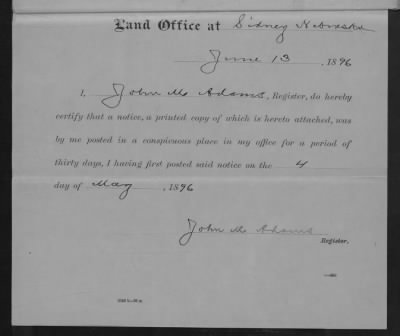 Land Office at Sidney Nebraska
June 13, 1896
I, John M Adams, Register, do hereby
certify that a notice, a printed copy of which is hereto attached, was
by me posted in a conspicuous place in my office for a period of
thirty days, I having first posted said notice on the 4
day of May, 1896
John M Adams
Register.